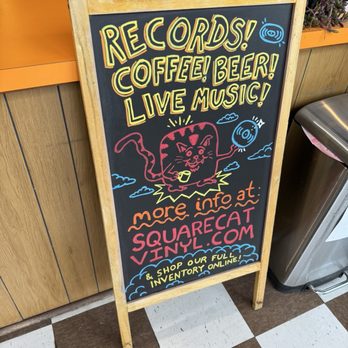 RECORDS!
COFFEE! BEER!
LIVE MUSIC!
more info at:
SQUARECAT
VINYL.COM
& SHOP OUR FULL
INVENTORY ONLINE!